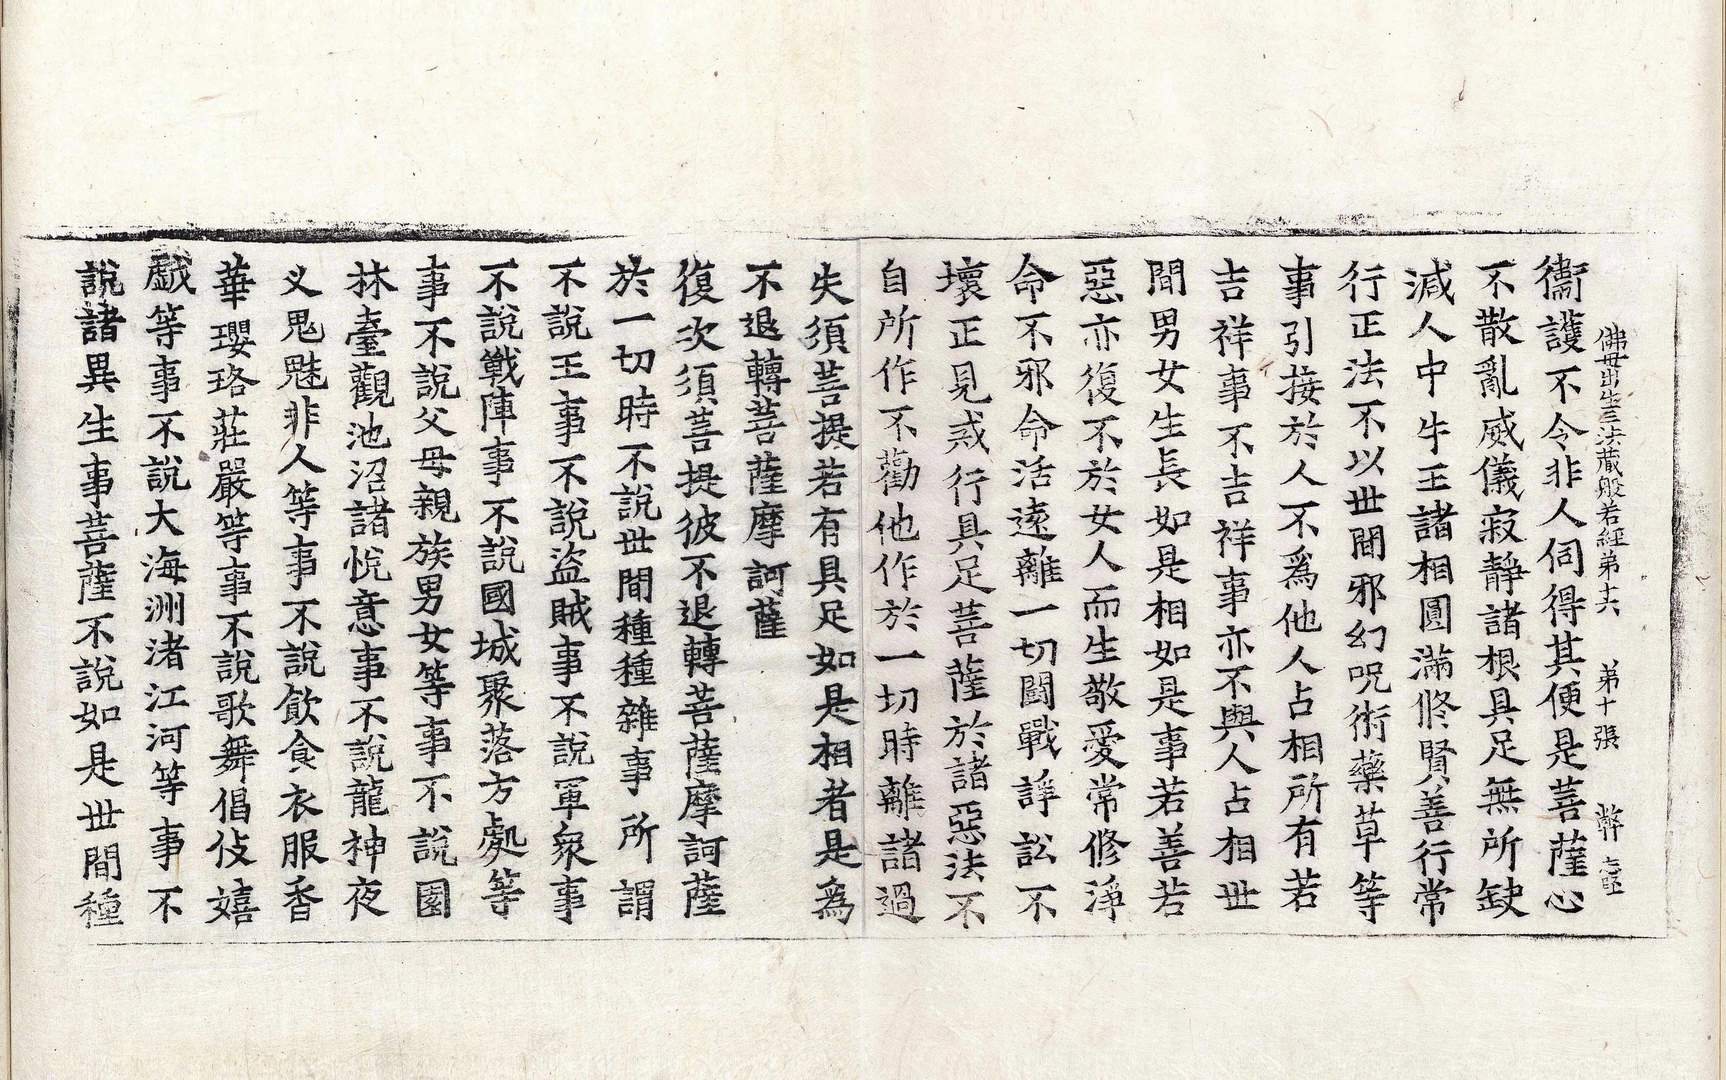 佛母出生三法藏般若經第十六 第十張 弊
衞護不令非人伺得其便是菩薩心
不散亂威儀寂靜諸根具足無所缺
減人中牛王諸相圓滿修賢善行常
行正法不以世間邪幻呪術藥草等
事引接於人不爲他人占相所有若
吉祥事不吉祥事亦不與人占相世
間男女生長如是相如是事若善若
惡亦復不於女人而生敬愛常修淨
命不邪命活遠離一切鬪戰諍訟不
壞正見戒行具足菩薩於諸惡法不
自所作不勸他作於一切時離諸過
失須菩提若有具足如是相者是爲
不退轉菩薩摩訶薩
復次須菩提彼不退轉菩薩摩訶薩
於一切時不說世間種種雜事所謂
不說王事不說盜賊事不說軍衆事
不說戰陣事不說國城聚落方處等
事不說父母親族男女等事不說園
林臺觀池沼諸悅意事不說龍神夜
叉鬼魅非人等事不說飮食衣服香
華瓔珞莊嚴等事不說歌舞倡伎嬉
戲等事不說大海洲渚江河等事不
說諸異生事菩薩不說如是世間種